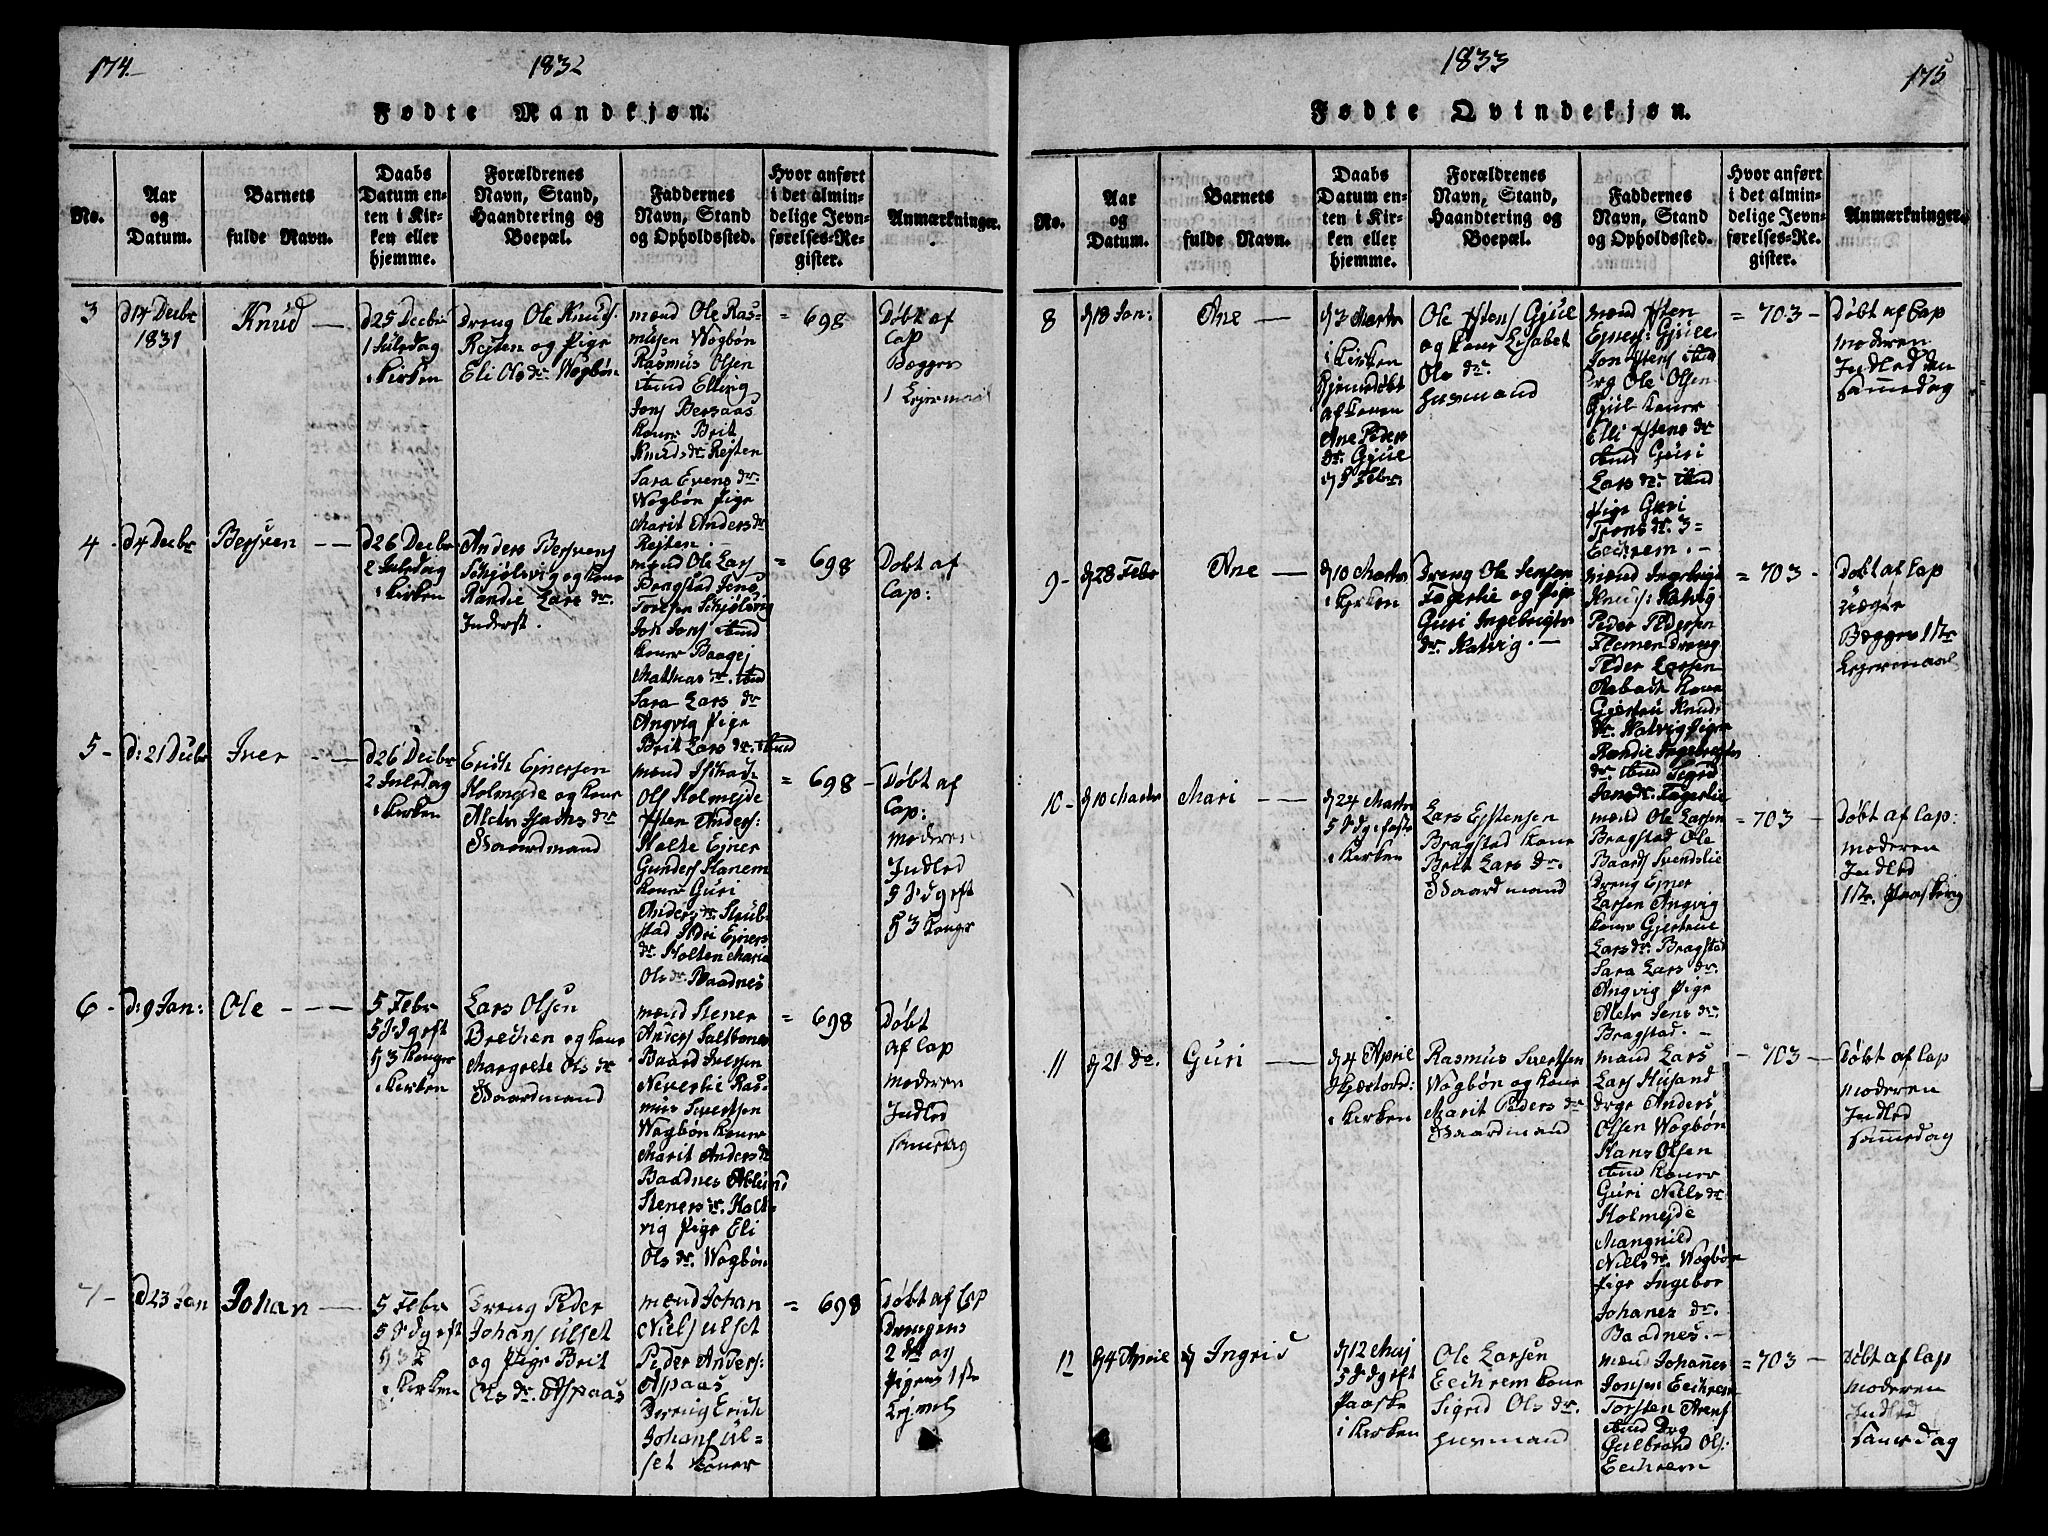 174.
1832
Fødte Mandkjøn.
No.
Aar
og
Datum.
Barnets
fulde Navn.
Daabs
Datum en-
ten i Kir-
ken eller
hjemme.
Forældrenes
Navn, Stand,
Haandtering og
Boepæl.
Faddernes
Navn, Stand
og Opholdssted.
Hvor anført
i det almin-
delige Jevn-
førelses-Re-
gister.
Anmærkninger.
3
d14 Decbr
1831
Knud
d25 Decbr
1 Juledag
i Kirken
Dreng Ole Knuds:
Rejten og Pige
Eli Ols dr. Wogbøn
mænd Ole Ras-
musen Wogbøn
Rasmus Olsen
ibid Elling
Jons Bersaas
koner Brit
Knuds dr. Rejten
Sara Evens dr.
Wogbøn Pige
Marit Anders dr
Rejten.
= 698
Døbt af
Cap
Begges
1 Lejermaal
4
d4 Decbr
Besven
d26 Decbr
2 Juledag
i Kirken
Anders Besvens
Schjølsvig og kone
Randie Lars dr.
Inderst.
mænd Ole Lars
Bragstad Jens
Torsen Schjølsvig
Jon Jons ibid
koner Baagej
Mathias dr. ibid
Sara Lars dr
Angvig Pige
Brit Lars dr. ibid
= 698
Døbt af
Cap:
5
d: 21 Decbr
Iver
d26 Decbr
2 Juledag
i Kirken
Erich Ejnersen
Holmejde og kone
Alchr dr
Gaardmand
mænd
Ols Holmejde
Østen Anders:
Holte Ejner
Gunders Hanem
koner Guri
Anders dr. Stub-
stad Sidri Ejners
dr. Holten Mari
Ols dr. Baadnes
= 698
Døbt af
Cap:
moderen
Indled
5 S: dg eft
H 3 Konger
6
d: 9 Jan:
Ole
5 Febr
5 S: dg eft
H 3 Konger
i Kirken
Lars Olsen
Brechen og kone
Margrete Ols dr
Gaardmand
mænd Stener
Anders Saltbones
Baard Iversen
Neverlie Ras-
mus Sivertsen
Wogbøn koner
Marit Anders dr
Baadnes
Steners dr. Hall-
vig Pige Eli
Ols dr. Wogbøn
= 698
Døbt
af Cap
moderen
Indled
samedag
7
d23 Jan
Johan
5 Febr
5 S dg eft
H 3 K
i Kirken
Dreng Peder
Johans Ulset
og Pige Brit
Ols dr. Aspaas
mænd Johan
Niels Ulset
Peder Anders:
Aspaas
Dreng Erich
Johans Ul-
set koner
= 698
Døbt af Cap
Drengens
2det og
Pigens 1ste
Lejml.
1833
175
Fødte Qvindekjøn.
No.
Aar
og
Datum.
Barnets
fulde Navn.
Daabs
Datum en-
ten i Kir-
ken eller
hjemme.
Forældrenes
Navn, Stand,
Haandtering og
Boepæl.
Faddernes
Navn, Stand
og Opholdssted.
Hvor anført
i det almin-
delige Jevn-
førelses-Re-
gister.
Anmærkninger.
8
d 18 Jan:
Ane
d 3 Marts
i Kirken
Hjemdøbt
af konen
Ane Peder
dr. Gjül
d 8 Febr.
Ole Østens Gjül
og kone Lisabet
Ols dr.
Husmand
mænd Østen
Ejners: Gjül
Jon Østens ibid
Drg Ole Olsen
Gjül koner
Elli Østens dr
ibid Guri
Lars dr. ibid
Pige Guri
Trons dr.
Eechrem.
= 703
Døbt af Cap
moderen
Indled den
sammedag
9
d 28 Febr
Ane
d 10 Marts
i Kirken
Dreng Ole Jensen
Fagerlie og Pige
Guri Ingebrigts
dr. Hatvig.
mænd Ingebrigt
Knuds: Hatvig
Peder Pedersen
Flemen dreng
Peder Larsen
Aasbach kone
Gjertru Knuds
dr. Hatvig Pige
Randie Ingebrigts
dr. ibid Sigrid
Jans dr. Fagerlie
= 703
Døbt af Cap
uægte
Begges 1ste
Lejermaal
10
d 10 Marts
Mari
d 24 Marts
5 S dg i faste
i Kirken
Lars Ejstensen
Bragstad kone
Brit Lars dr.
Gaardmand
mænd Ole Larsen
Bragstad Ole
Baards Svendslie
dreng Ejner
Larsen Angvig
koner Gjertrue
Lars dr. Bragstad
Sara Lars dr.
Angvig Pige
Alchr Jens dr.
Bragstad.
= 703
Døbt af Cap:
moderen
Indled
1ste Paaskedag
11
d 21 do.
Guri
d 4 April
Skjertord:
i Kirken
Rasmus Sivertsen
Wogbøn og kone
Marit Peders dr
Gaardmand
mænd Lars
Lars Husand
drge Anders
Olsen Wogbøn
Hans Olsen
ibid koner
Guri Niels dr
Holmejde
Mangnild
Niels dr Wogbøn
Pige Ingebor
Johanes dr.
Baadnes.
703
Døbt af Cap
moderen
Indled
sammedag
12
d 4 April
Ingris
d 12 Maj
5 S dg eft
Paaske
i Kirken
Ole Larsen
Eechrem kone
Sigrid Ols dr.
Husmand
mænd Johannes
Jonsen Eechrem
Torsten Arens
ibid Drg
Gulbrand Ols:
Eechrem
= 703
Døbt af Cap
moderen
Indled
samedag